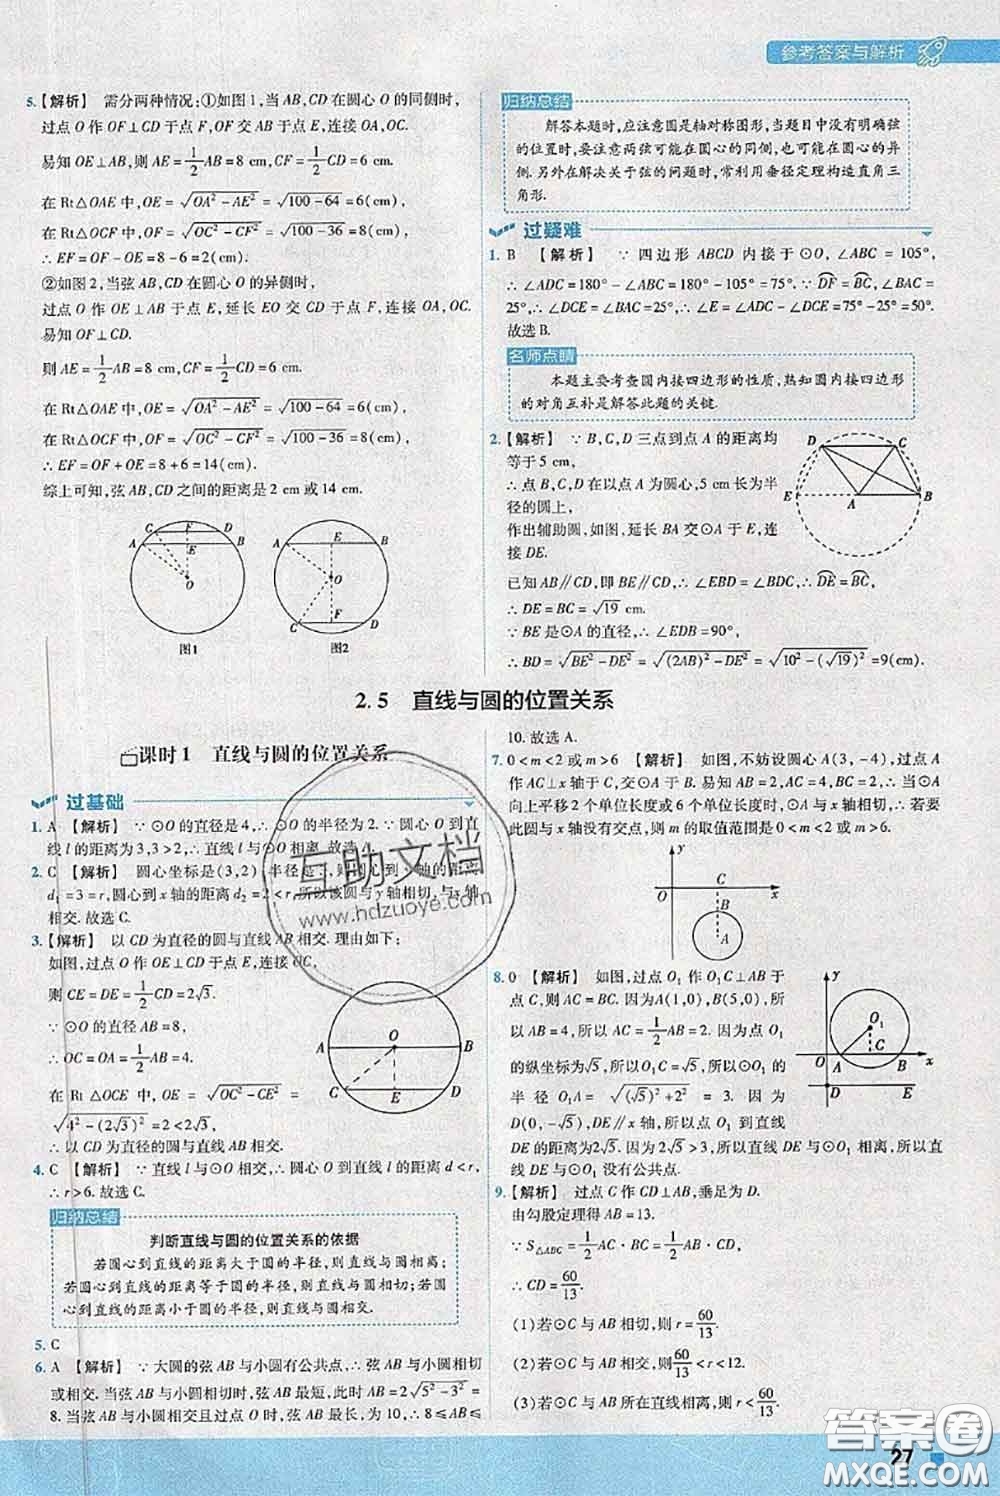 参考答案与解析
5.【解析】 需分两种情况:①如图1,当AB,CD在圆心O的同侧时,
过点O作OF⊥CD于点F,OF交AB于点E,连接OA,OC.
易知OE⊥AB,则AE=1/2AB=8 cm,CF=1/2CD=6 cm.
在Rt△OAE中,OE=√(OA²-AE²)=√(100-64)=6(cm).
在Rt△OCF中,OF=√(OC²-CF²)=√(100-36)=8(cm).
∴EF=OF-OE=8-6=2(cm).
②如图2,当弦AB,CD在圆心O的异侧时,
过点O作OE⊥AB于点E,延长EO交CD于点F,连接OA,OC.
易知OF⊥CD.
则AE=1/2AB=8 cm,CF=1/2CD=6 cm.
在Rt△OAE中,OE=√(OA²-AE²)=√(100-64)=6(cm).
在Rt△OCF中,OF=√(OC²-CF²)=√(100-36)=8(cm).
∴EF=OF+OE=8+6=14(cm).
综上可知,弦AB,CD之间的距离是2 cm或14 cm.
C F D
A E B
O
图1
A E B
O
C F D
图2
归纳总结
解答本题时,应注意圆是轴对称图形,当题目中没有明确弦
的位置时,要注意两弦可能在圆心的同侧,也可能在圆心的异
侧.另外在解决关于弦的问题时,常利用垂径定理构造直角三
角形.
过疑难
1. B 【解析】 ∵四边形ABCD内接于⊙O,∠ABC=105°,
∴∠ADC=180°-∠ABC=180°-105°=75°.∵DF⌒=BC⌒,∠BAC=
25°,∴∠DCE=∠BAC=25°,∴∠E=∠ADC-∠DCE=75°-25°=50°.
故选B.
名师点睛
本题主要考查圆内接四边形的性质,熟知圆内接四边形
的对角互补是解答此题的关键.
2.【解析】 ∵B,C,D三点到点A的距离均
等于5 cm,
∴点B,C,D在以点A为圆心,5 cm长为半
径的圆上,
作出辅助圆,如图,延长BA交⊙A于E,连
接DE.
已知AB∥CD,即BE∥CD,∴∠EBD=∠BDC,∴DE⌒=BC⌒,
∴DE=BC=√19 cm.
∵BE是⊙A的直径,∴∠EDB=90°,
∴BD=√(BE²-DE²)=√((2AB)²-DE²)=√(10²-(√19)²)=9(cm).
D C
E A B
2.5 直线与圆的位置关系
课时1 直线与圆的位置关系
过基础
1. A 【解析】 ∵⊙O的直径是4,∴⊙O的半径为2.∵圆心O到直
线l的距离为3,3>2,∴直线l与⊙O相离.故选A.
2. C 【解析】 圆心坐标是(3,2),半径是3,圆心到y轴的距离
d₁=3=r,圆心到x轴的距离d₂=2<r,所以该圆与y轴相切,与x轴
相交.故选C.
3.【解析】 以CD为直径的圆与直线AB相交.理由如下:
如图,过点O作OE⊥CD于点E,连接OC,
则CE=DE=1/2CD=2√3.
∵⊙O的直径AB=8,
∴OC=OA=1/2AB=4.
在Rt△OCE中,OE=√(OC²-CE²)=
√(4²-(2√3)²)=2<2√3,
∴以CD为直径的圆与直线AB相交.
A O B
C E D
4. C 【解析】 ∵直线l与⊙O相交,∴圆心O到直线l的距离d<r,
∴r>6.故选C.
归纳总结
判断直线与圆的位置关系的依据
若圆心到直线的距离大于圆的半径,则直线与圆相离;
若圆心到直线的距离等于圆的半径,则直线与圆相切;若
圆心到直线的距离小于圆的半径,则直线与圆相交.
5. C
6. A 【解析】 ∵大圆的弦AB与小圆有公共点,∴弦AB与小圆相切
或相交.当弦AB与小圆相切时,弦AB最短,此时AB=2√(5²-3²)=
8.当弦AB与小圆相交且过点O时,弦AB最长,为10,∴8≤AB≤
10.故选A.
7. 0<m<2或m>6 【解析】 如图,不妨设圆心A(3,-4),过点A
作AC⊥x轴于C,交⊙A于B.易知AB=2,AC=4,∴BC=2,∴⊙A
向上平移2个单位长度或6个单位长度时与x轴相切,∴若要
此圆与x轴没有交点,则m的取值范围是0<m<2或m>6.
y
O C x
B
A
8. 0 【解析】 如图,过点O₁作O₁C⊥AB于
点C,则AC=BC.因为A(1,0),B(5,0),所
以AB=4,所以AC=1/2AB=2.因为点O₁
的纵坐标为√5,所以O₁C=√5,所以⊙O₁的
半径O₁A=√((√5)²+2²)=3.因为
D(0,-√5),DE∥x轴,所以点O₁到直线
DE的距离为2√5.因为2√5>3,所以直线DE与⊙O₁相离,所以直线
DE与⊙O₁没有公共点.
y
O₁
O A C B x
D E
9.【解析】 过点C作CD⊥AB,垂足为D.
由勾股定理得AB=13.
∵S△ABC=1/2AC·BC=1/2AB·CD,
∴CD=60/13.
(1)若⊙C与AB相切,则r=60/13.
(2)若⊙C与AB相交,则60/13<r<12.
(3)若⊙C与直线AB相离,则r<60/13.
互助文档
www.hdzuoye.com
答案圈
MXQE.COM
27